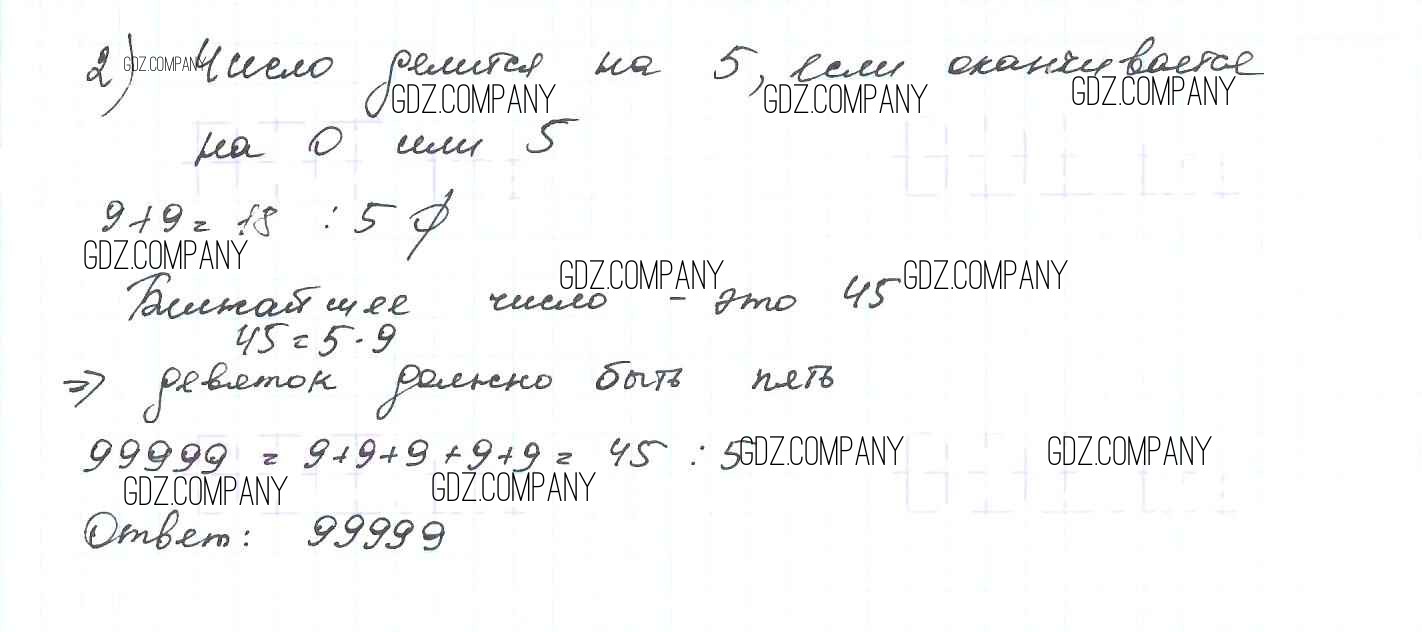 2) Число делится на 5, если оканчивается
GDZ.COMPANY
GDZ.COMPANY GDZ.COMPANY GDZ.COMPANY
на 0 или 5
9+9= 18 : 5
GDZ.COMPANY GDZ.COMPANY GDZ.COMPANY
Ближайшее число - это 45
45=5·9
=> девяток должно быть пять
99999 = 9+9+9+9+9= 45 : 5
GDZ.COMPANY GDZ.COMPANY
GDZ.COMPANY GDZ.COMPANY
Ответ: 99999